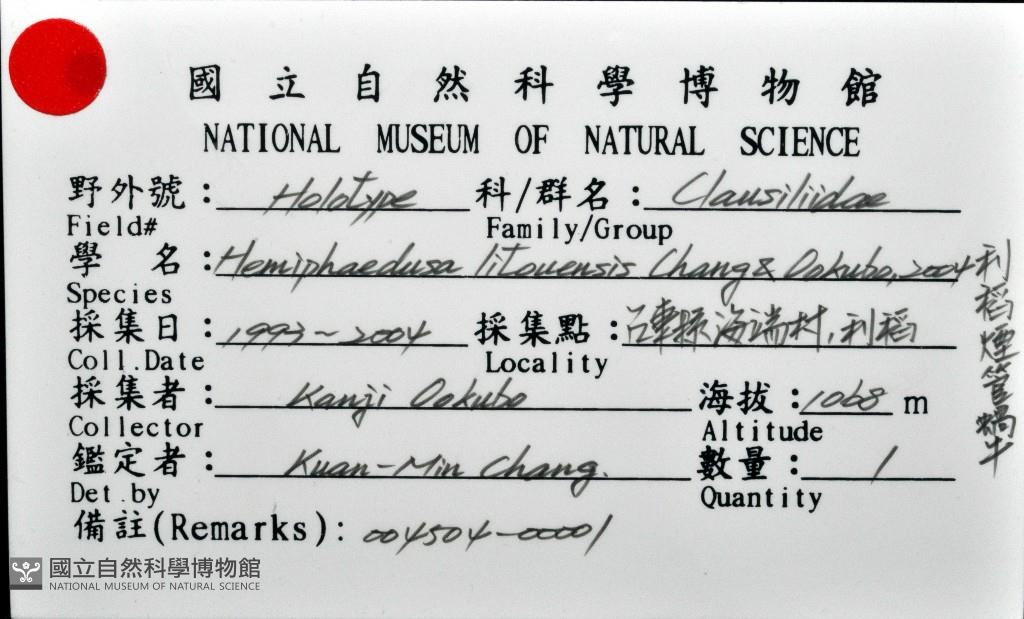 國立自然科學博物館
NATIONAL MUSEUM OF NATURAL SCIENCE
野外號: Holotype 科/群名: Clausiliidae
Field# Family/Group
學 名: Hemiphaedusa litouensis Chang & Ookubo, 2004
Species
採集日: 1993~2004 採集點: 縣海端村, 利稻
Coll.Date Locality
採集者: Kanji Ookubo 海拔: 1068 m
Collector Altitude
鑑定者: Kuan-Min Chang. 數量: 1
Det.by Quantity
備註(Remarks): 004504-00001
利稻煙管蝸牛
國立自然科學博物館
NATIONAL MUSEUM OF NATURAL SCIENCE